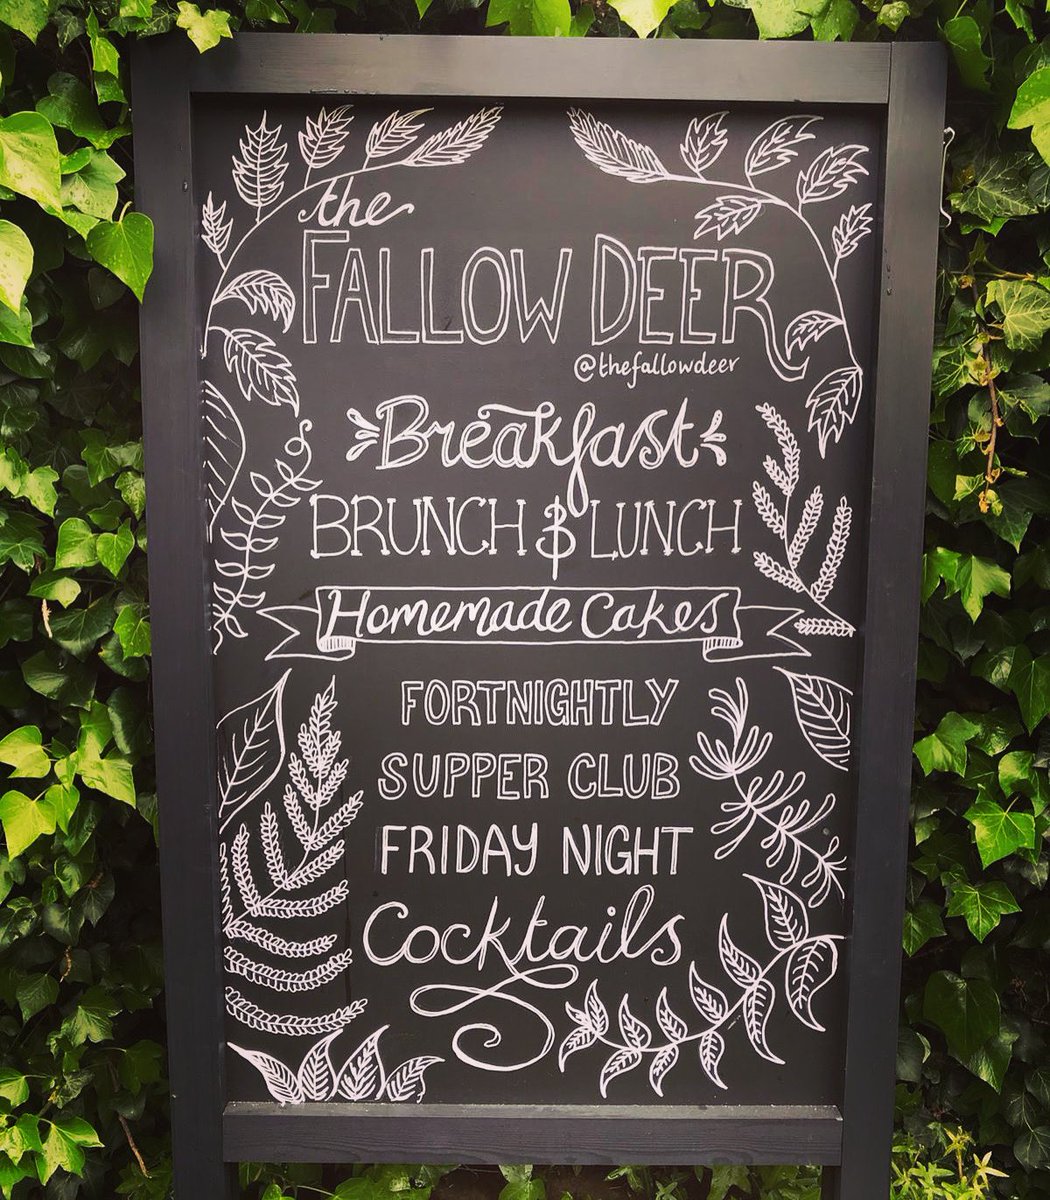 the
FALLOW DEER
@thefallowdeer
Breakfast
BRUNCH & LUNCH
Homemade Cakes
FORTNIGHTLY
SUPPER CLUB
FRIDAY NIGHT
Cocktails